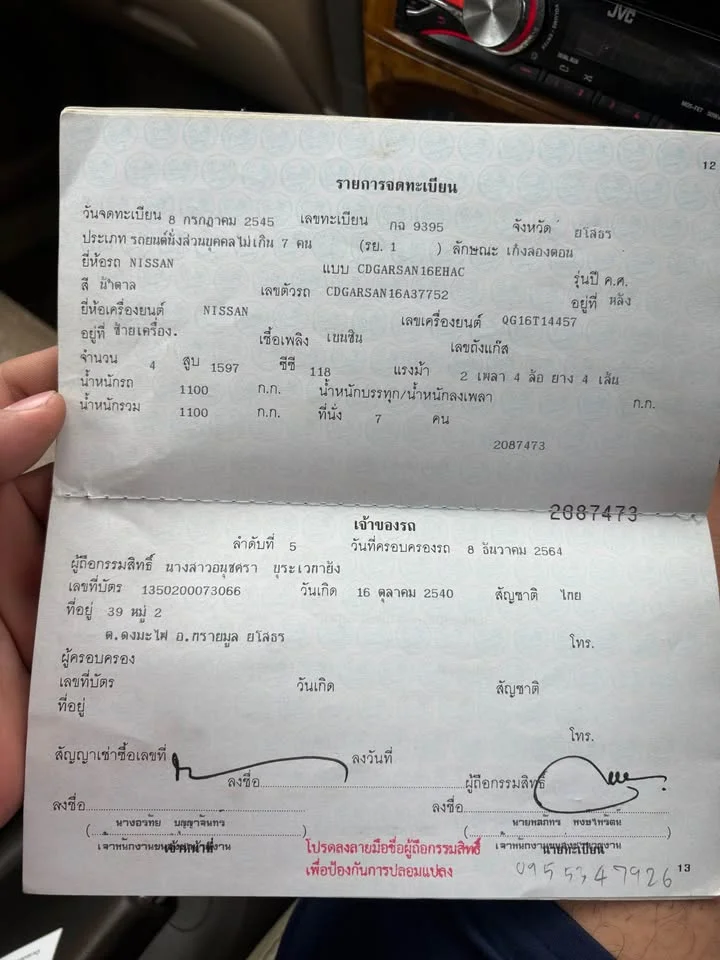 JVC
12
รายการจดทะเบียน
วันจดทะเบียน 8 กรกฎาคม 2545 เลขทะเบียน กฉ 9395 จังหวัด ยโสธร
ประเภท รถยนต์นั่งส่วนบุคคลไม่เกิน 7 คน (รย. 1 ) ลักษณะ เก๋งสองตอน
ยี่ห้อรถ NISSAN แบบ CDGARSAN16EHAC รุ่นปี ค.ศ.
สี น้ำตาล เลขตัวรถ CDGARSAN16A37752 อยู่ที่ หลัง
ยี่ห้อเครื่องยนต์ NISSAN เลขเครื่องยนต์ QG16T14457
อยู่ที่ ซ้ายเครื่อง. เชื้อเพลิง เบนซิน เลขถังแก๊ส
จำนวน 4 สูบ 1597 ซีซี 118 แรงม้า 2 เพลา 4 ล้อ ยาง 4 เส้น
น้ำหนักรถ 1100 ก.ก. น้ำหนักบรรทุก/น้ำหนักลงเพลา ก.ก.
น้ำหนักรวม 1100 ก.ก. ที่นั่ง 7 คน
2087473
2087473
เจ้าของรถ
ลำดับที่ 5 วันที่ครอบครองรถ 8 ธันวาคม 2564
ผู้ถือกรรมสิทธิ์ นางสาวอนุชศรา บุระเวทายัง
เลขที่บัตร 1350200073066 วันเกิด 16 ตุลาคม 2540 สัญชาติ ไทย
ที่อยู่ 39 หมู่ 2
ต.ดงมะไฟ อ.ทรายมูล ยโสธร โทร.
ผู้ครอบครอง
เลขที่บัตร วันเกิด สัญชาติ
ที่อยู่
โทร.
สัญญาเช่าซื้อเลขที่ ลงวันที่
ลงชื่อ ผู้ถือกรรมสิทธิ์
ลงชื่อ ลงชื่อ
( นางอรทัย ) ( )
เจ้าหน้าที่ นายทะเบียน
โปรดลงลายมือชื่อผู้ถือกรรมสิทธิ์
เพื่อป้องกันการปลอมแปลง
0955347926
13